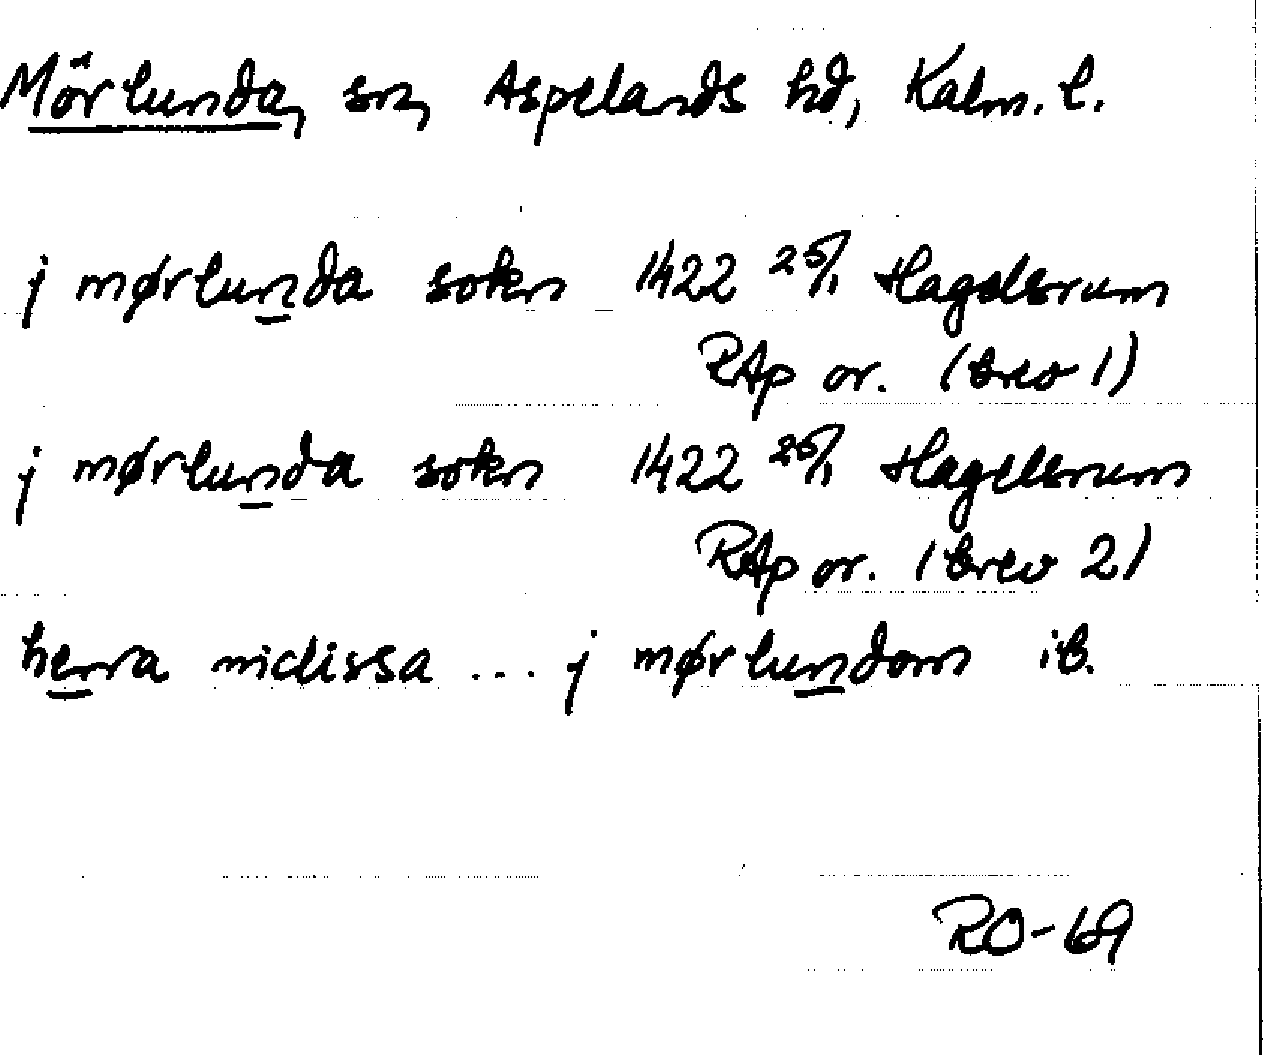 Mörlunda, sn, Aspelands hd, Kalm. l.
j mørlunda sokn 1422 25/1 Hagelsrum
RAp or. (brev 1)
j mørlunda sokn 1422 25/1 Hagelsrum
RAp or. (brev 2)
herra niclissa ... j mørlundom ib.
RO-69